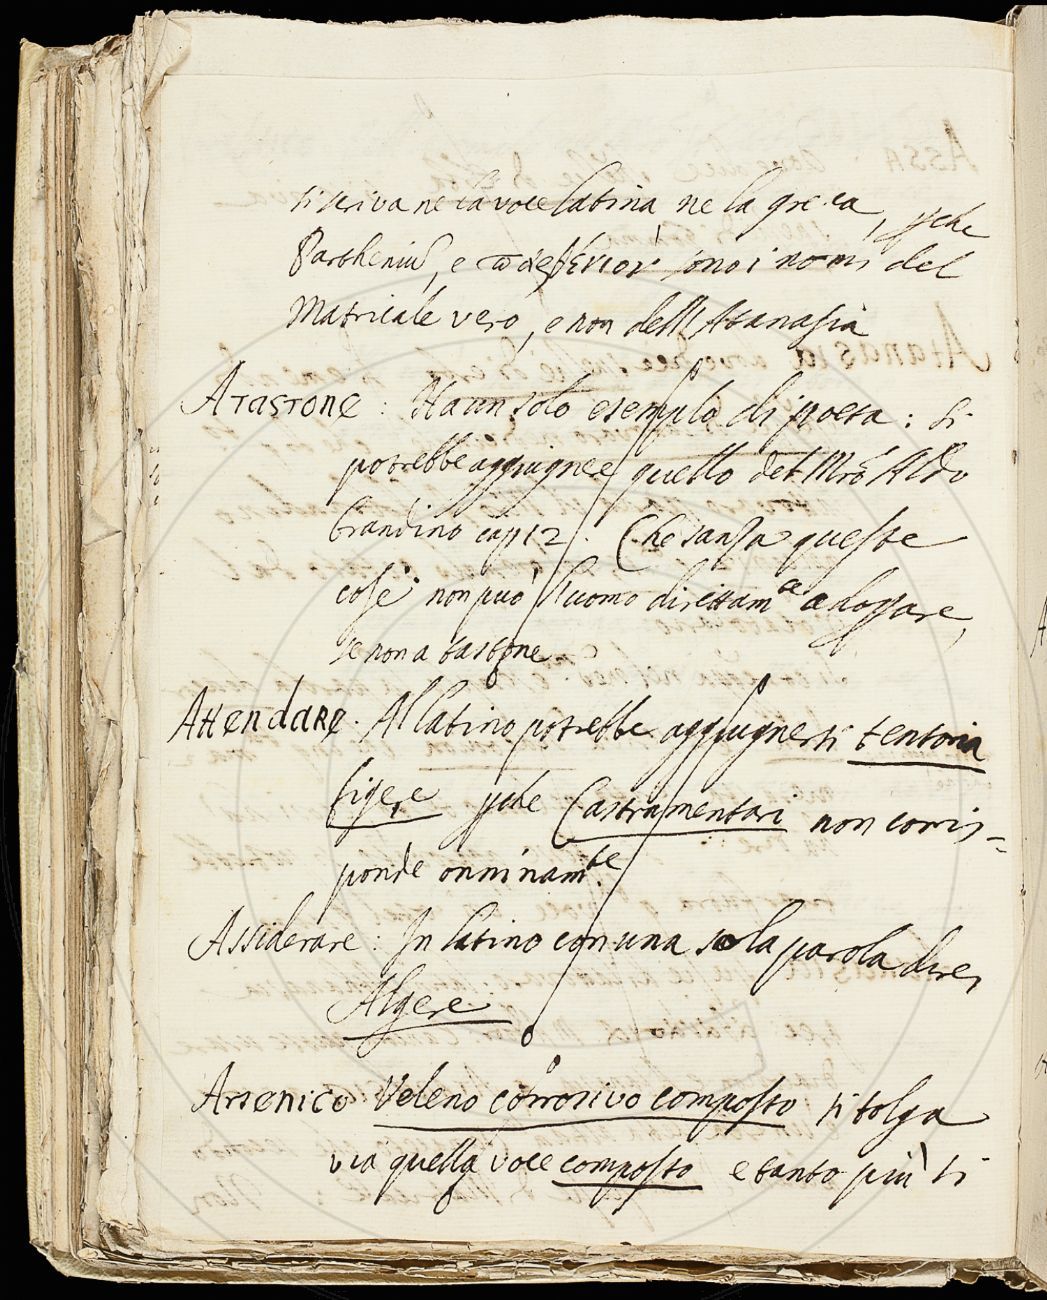 si scriva ne la voce latina ne la greca, pche
Partheniũ, e sono i nomi del
Matricale vero, e non dell'Atanasia
Atastone: Ha un solo esemplo di poeta: si
potrebbe aggiugnere quello del Mrõ Aldo
brandino cap 12. Che sanza queste
cose non può l'uomo direttamte adossare,
se non a tastone
Attendare. Al latino potrebbe aggiugnersi tentoria
figere pche Castramentari non corris=
ponde onninamte.
Assiderare: In latino con una sola parola direi
Algere
Arsenico Veleno corrosivo composto si tolga
via quella voce composto e tanto più si